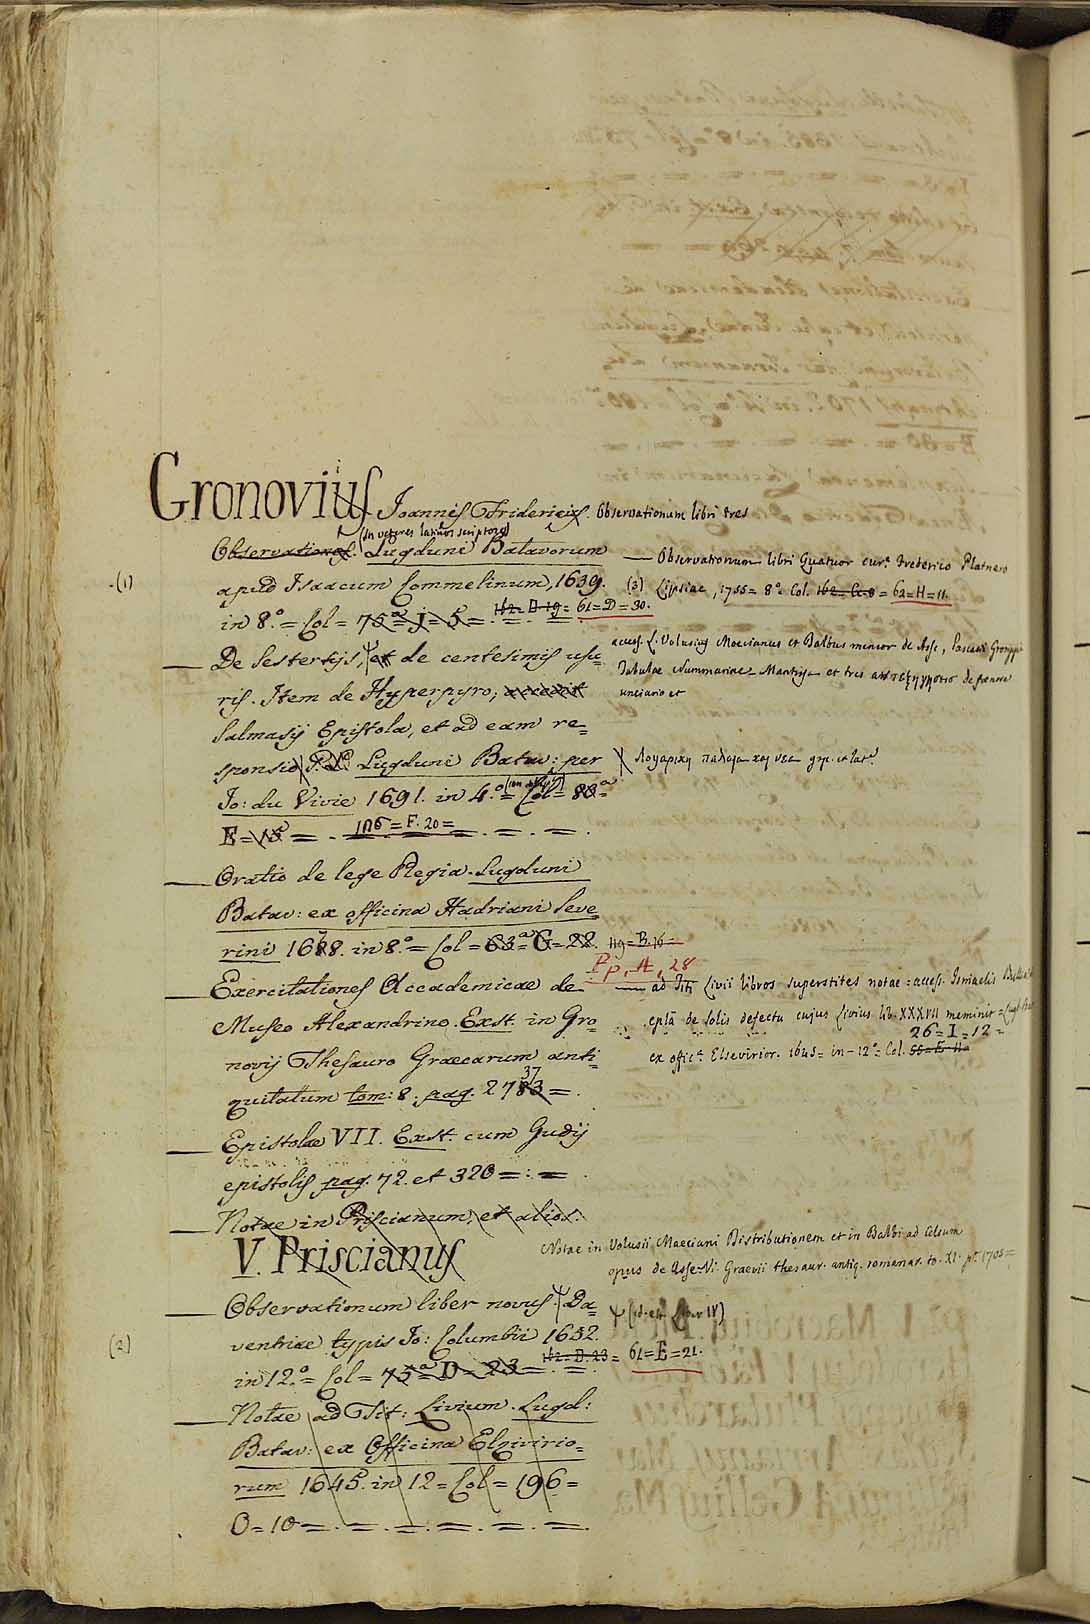 Gronovius Joannes Fridericus. Observationum libri tres
(In veteres latinos scriptores)
Observationes. Lugduni Batavorum
(1) apud Isaacum Commelinum, 1639.
in 8.° = Col = 75ª = j = 5 = 162 = D. 19 = 61 = D = 30.
— Observationum libri Quatuor cur.ᵉ Frederico Platnero
(3) Lipsiae, 1755 = 8° Col. = 62 = H = 11.
De Sestertijs, et de centesimis usu=
ris. Item de Hyperpyro;
Salmasij Epistola, et ad eam re=
sponsio Lugduni Batav: per
Jo: du Vivie 1691. in 4.° = Col = 80ª =
E = 15 = 116 = F. 20 =
access. L. Volusius Moecianus et Balbus mencor de Asse, Pascasii Grosippi
Tabulae Nummariae - Mantissa et tres de foenore
unciario et
Λογαρικη παλαια και νεα gr. et lat.ᵉ
Oratio de lege Regia. Lugduni
Batav: ex officina Hadriani Seve
rini 1678. in 8.° = Col = 63ª = G = 22. 119 = B. 16 =
PP, A, 28
Exercitationes Accademicae de
Museo Alexandrino. Exst. in Gro=
novij Thesauro Graecarum anti=
quitatum tom: 8. pag. 2737 =
— ad Titi Livii libros superstites notae = access. Ismaelis
epla de solis defectu cujus Livius lib. XXXVII meminit =
26 = I = 12 =
ex offic.ᵃ Elsevirior. 1645 = in - 12° = Col. 55 = E = 11 =
Epistolae VII. Exst. cum Gudij
epistolis pag. 72. et 320 = : =
Notae in Priscianum, et alios.
V. Priscianus
Notae in Volusii Maeciani Distributionem et in Balbi ad Celsum
opus de Asse - Vi. Graevii thesaur. antiq. romanar. to. XI. p. 1705 =
Observationum liber novus Da=
(id est Liber IV)
(2) ventriae typis Jo: Columbii 1652.
in 12.° = Col = 75ª = D = 23 = 162 = D. 23 = 61 = E = 21.
Notae ad Tit: Livium. Lugd:
Batav: ex Officina Elzivirio=
rum 1645. in 12 = Col = 196 =
O = 10 =